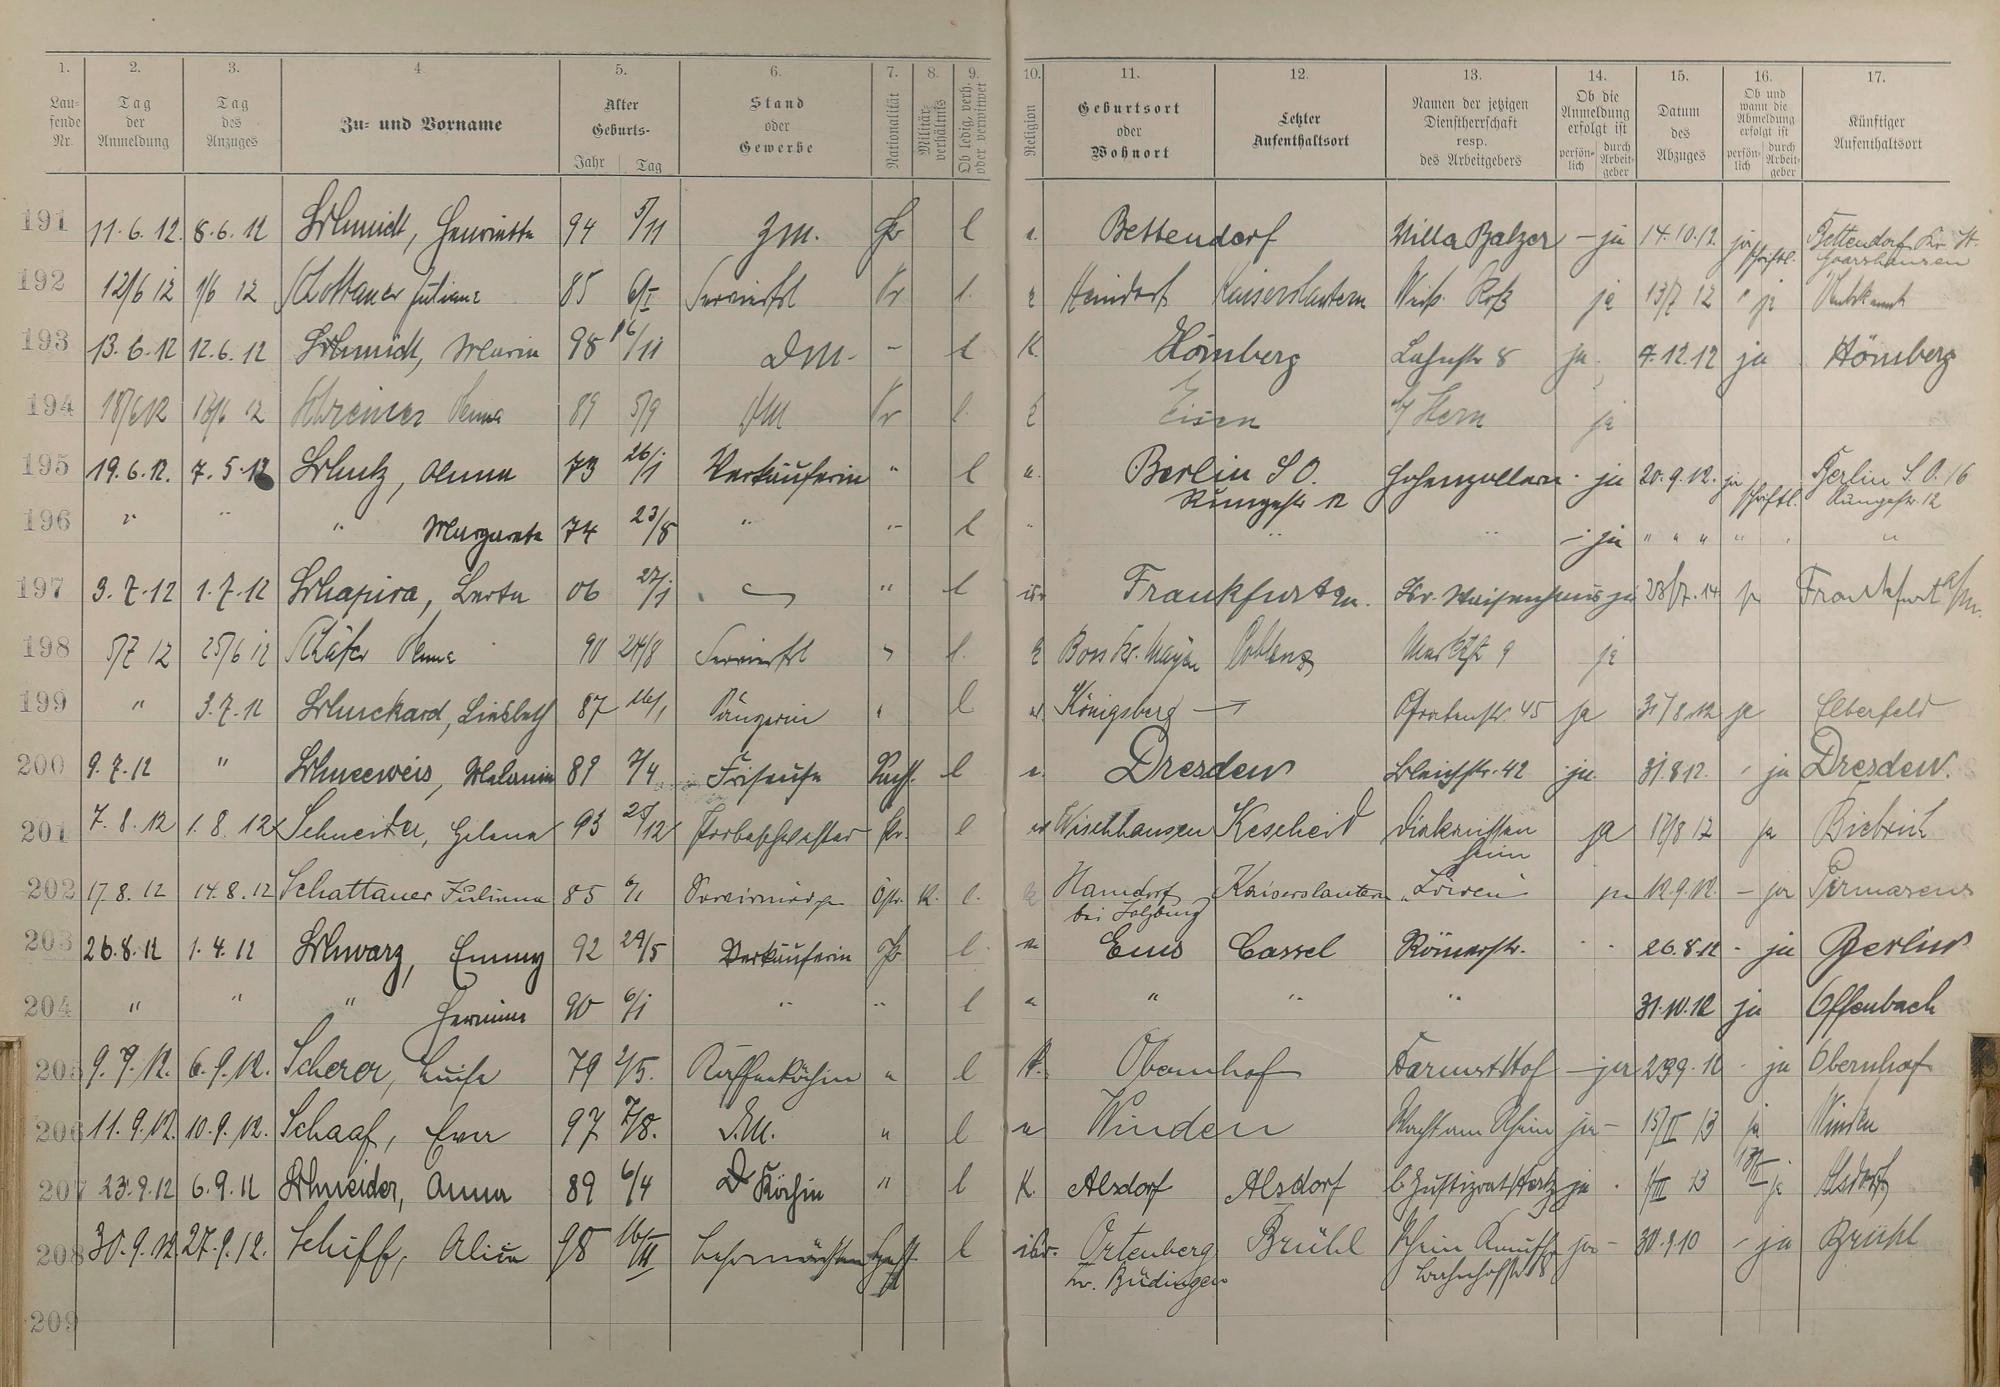 1. 2. 3. 4. 5. 6. 7. 8. 9. 10. 11. 12. 13. 14. 15. 16. 17.
Laufende Nr.
Tag der Anmeldung
Tag des Anzuges
Zu- und Vorname
Alter Geburts-
Jahr Tag
Stand oder Gewerbe
Nationalität
Militärverhältnis
Ob ledig, verh. oder verwitwet
Religion
Geburtsort oder Wohnort
Letzter Aufenthaltsort
Namen der jetzigen Dienstherrschaft resp. des Arbeitgebers
Ob die Anmeldung erfolgt ist
persönlich durch Arbeitgeber
Datum des Abzuges
Ob und wann die Abmeldung erfolgt ist
persönlich durch Arbeitgeber
Künftiger Aufenthaltsort
191 11.6.12. 8.6.12 Schmidt, Henriette 94 5/11 Zm. Pr l e. Bettendorf Villa Balzer – ja 14.10.12. ja schriftl. Bettendorf Kr. St. Goarshausen
192 12/6 12 1/6 12 Schottauer Juliane 85 6/I Servierfrl Pr l. Kaiserslautern Weiß. Roß ja 13/7 12 " ja
193 13.6.12 12.6.12 Schmidt, Maria 98 16/11 DM. – l K. Hömberg Lahnstr 8 ja 7.12.12 ja Hömberg
194 18/6 12 Schreiner Anna 89 5/9 DM Pr l. Eisen ja
195 19.6.12. 7.5.12 Schulz, Anna 73 26/1 Verkäuferin " l e. Berlin S.O. Rungestr 12 Hohenzollern – ja 20.9.12. ja schriftl. Berlin S.O. 16 Rungestr. 12
196 " " " Margarete 74 23/8 " " l " " " – ja " " " " "
197 3.7.12 1.7.12 Schapira, Berta 06 27/1 – " l isr. Frankfurt a/m. Isr. Waisenhaus ja 28/7.14 ja Frankfurt a/m.
198 5/7 12 25/6 12 Schäfer Anna 90 24/8 Servierfrl " l. Boos Kr. Mayen Coblenz Marktstr 9 ja
199 " 3.7.12 Schuckard, Liesbeth 87 Sängerin " l Königsberg Grabenstr. 45 ja 31/8.12 ja Elberfeld
200 9.7.12 " Schneeweis, Melanie 89 7/4 Friseuse Sachs. l e. Dresden Bleichstr. 42 ja 31.8.12. – ja Dresden.
201 7.8.12 1.8.12 Schneider, Helene 93 28/12 Probeschwester Pr. l Kescheid Diakonissen heim ja 17/8 12 ja Biebrich
202 17.8.12 14.8.12 Schattauer Juliana 85 6/1 Östr. K. l. Hamdorf bei Salzburg Kaiserslautern „Löwen" ja 12.9.12. – ja Pirmasens
203 26.8.12 1.4.12 Schwarz, Emmy 92 29/5 Verkäuferin Pr l. Ems Cassel Römerstr. 26.8.12 – ja Berlin
204 " " " Hermine 90 6/1 " " l " " " " 31.10.12 ja Offenbach
205 9.9.12. 6.9.12. Scherer, Luise 79 2/5. Kaffeeköchin " l K. Obernhof Darmst. Hof – ja 29.9.12 – ja Obernhof
206 11.9.12. 10.9.12. Schaaf, Eva 97 7/8. D.M. " l Winden Wacht am Rhein ja – 15/II 13 ja Winden
207 23.9.12 6.9.12 Schneider, Anna 89 6/4 Köchin " l K. Alsdorf Alsdorf b Justizrat Hertz ja 1/III 13 ja Alsdorf
208 30.9.12 27.9.12. Schiff, Alice 98 16/III Lehrmädchen Hess. l isr. Ortenberg Kr. Büdingen Brühl ja – 30.9.10 – ja Brühl
209